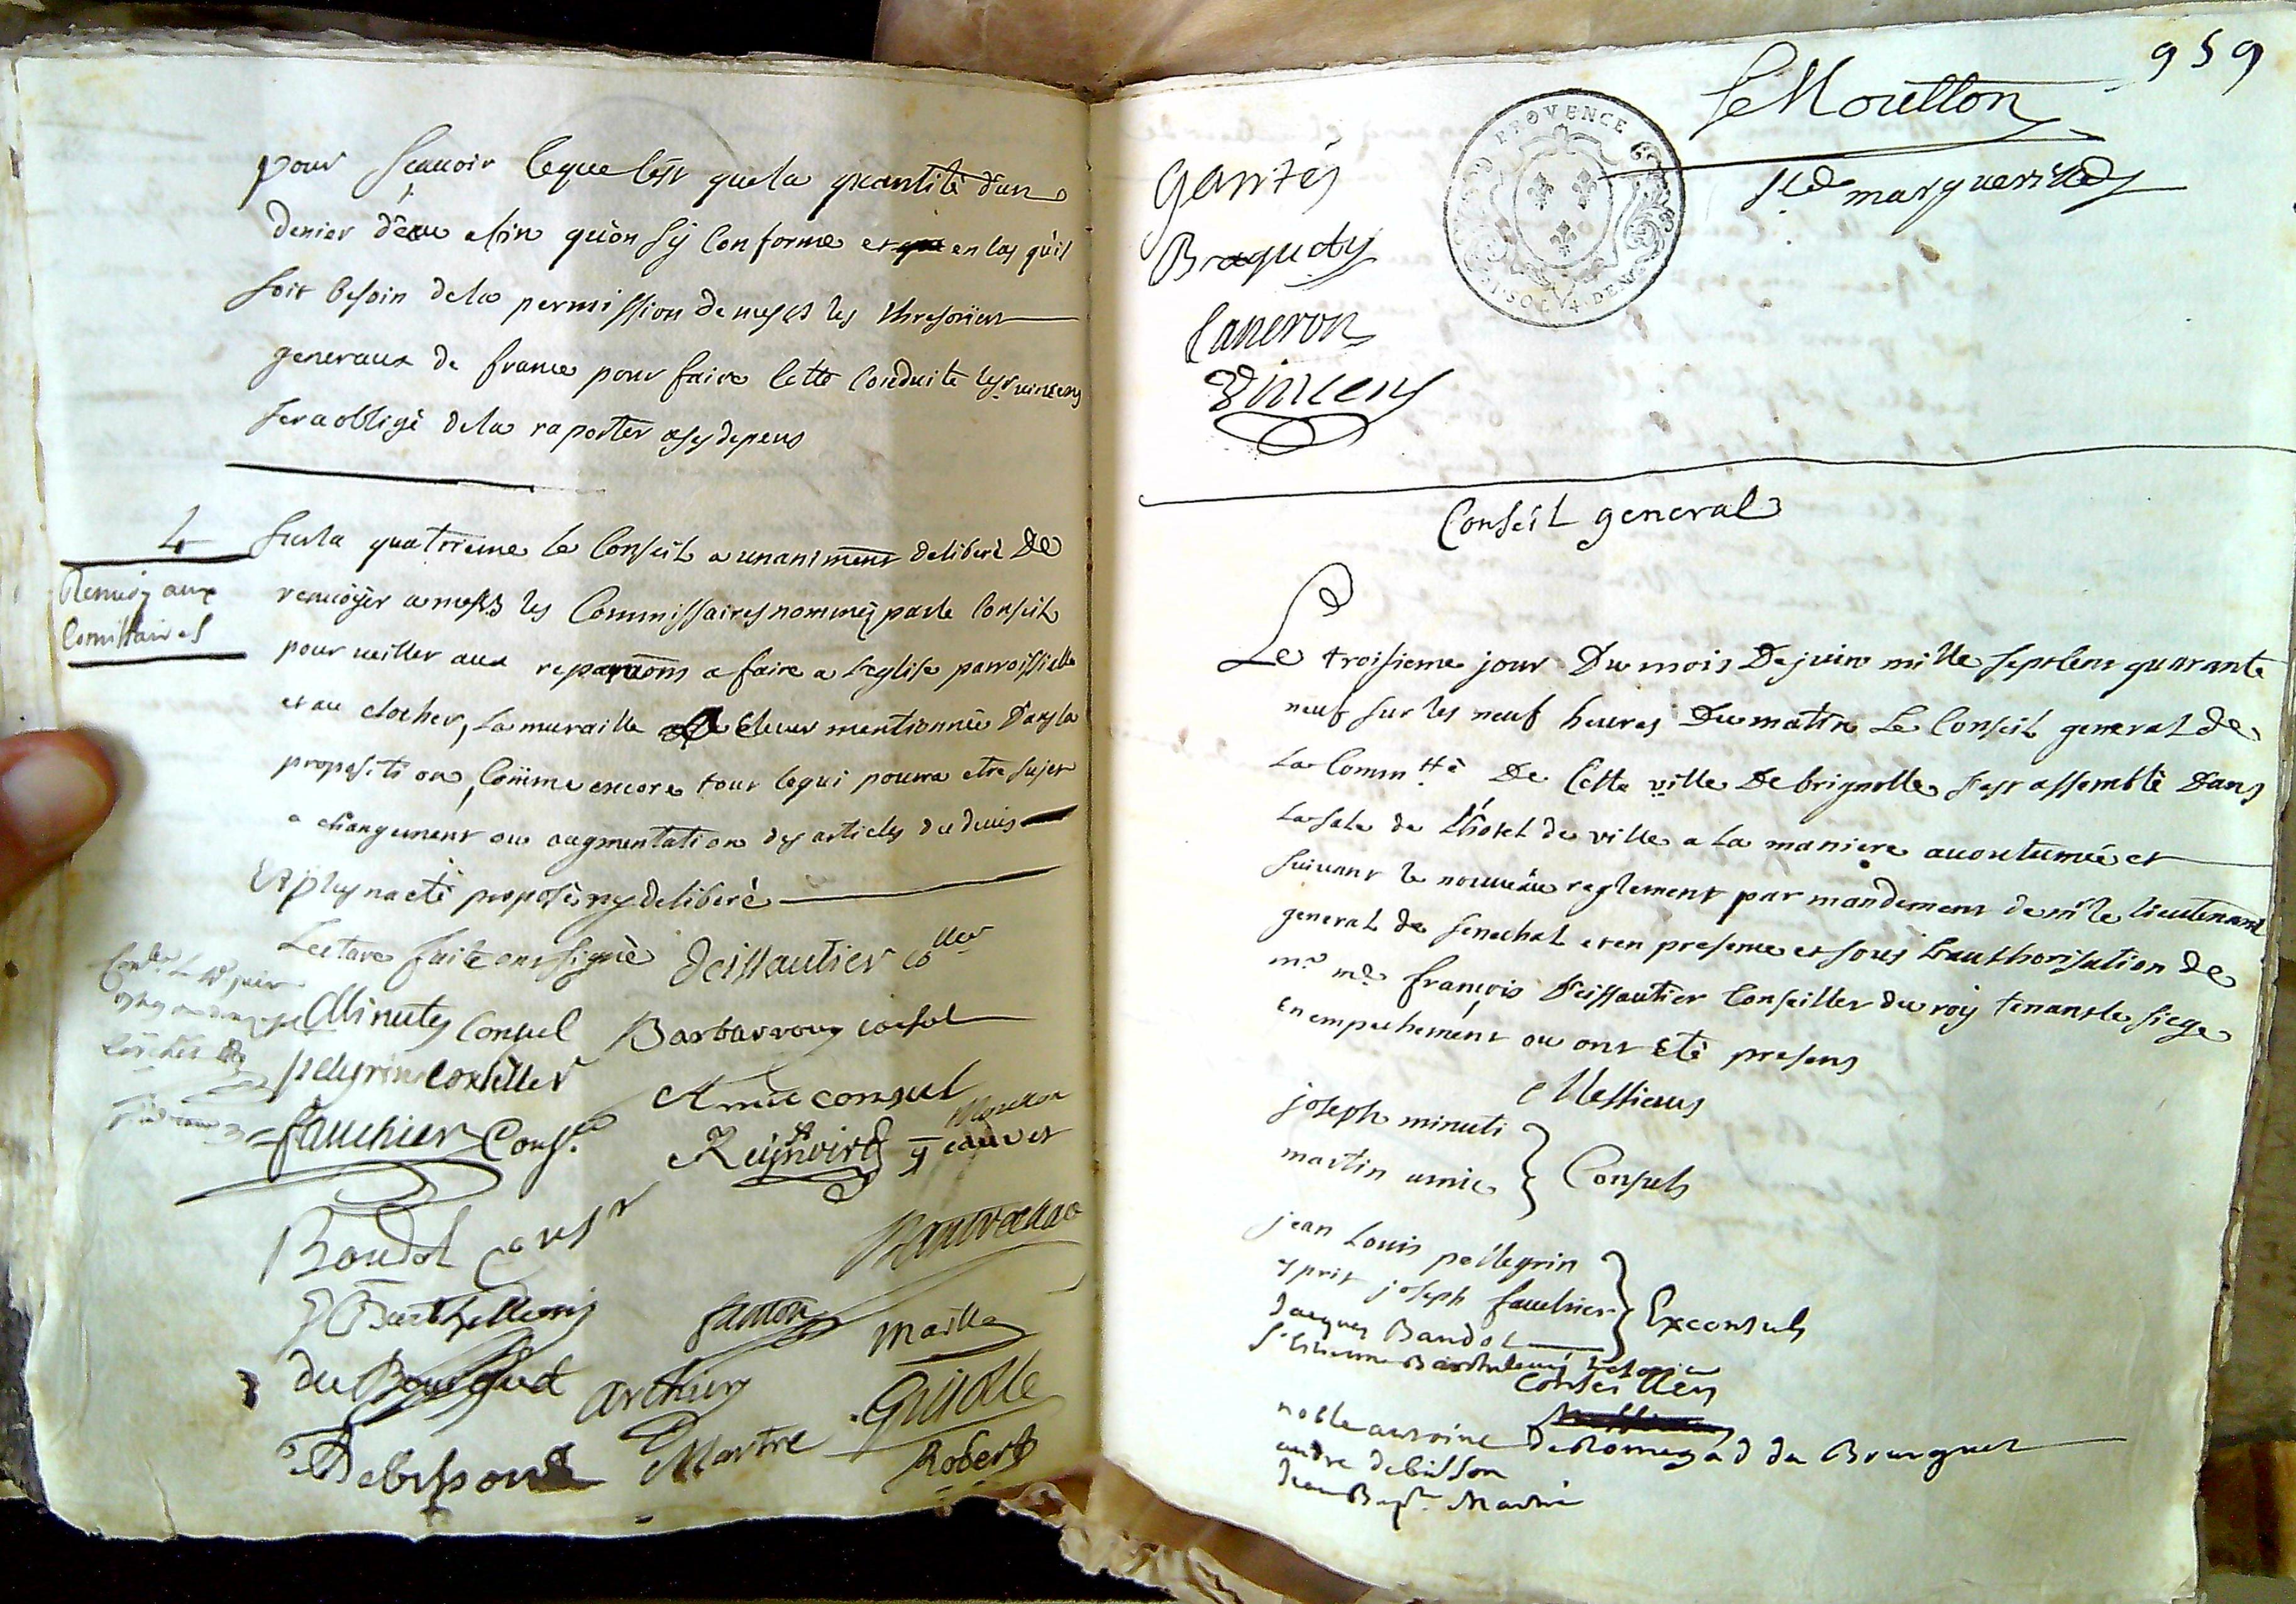 pour sçauoir ceque cest que la quantité d'un
denier d'eau afin qu'on sÿ conforme et en cas qu'il
soit besoin de la permission de mess.rs les thresoriers
generaux de france pour faire cette conduite le s.r vincens
sera obligé de la raporter a ses depens
4
Renuoy aux
Comissaires
Sur la quatrieme le Conseil a unaniment deliberé de
renuoÿer a mess.rs les Commissaires nommés par le Conseil
pour ueiller aux reparaõns a faire a l'eglise parroissielle
et au clocher, la muraille a eleuer mentionnée dans la
proposition, Comme encore tout cequi pourra etre sujet
a changement ou augmentation des articles du deuis
Et plus na eté proposé ny deliberé
Lecture faite ont signé deissautier c.ller
Minuty Consul Barbarroux consul
pelegrin conseiller Amic consul
fauchier Cons.r Reÿnoird Mouton
g cauvet
Baudol cons.r
Barthellemy fanton maille
du Bourguet Arthur Guiolle
Debisson Martre Robert
959
le Moutton
s.te marguerittes
PROVENCE
Gantés
Braquety
Caneron
Vincens
Conseil general
Le troisieme jour du mois de juin mille septcens quarante
neuf sur les neuf heures du matin Le Conseil general de
La Comm.tté De Cette ville De brignolle s'est assemblé dans
La sale de l'hotel de ville a la maniere acoutumée et
suiuant le nouueau reglement par mandement de m.r le lieutenant
general de senechal et en presence et sous l'authorisation de
m.r m.e françois deissautier Conseiller du roÿ tenant le siege
en empechement ou ont eté presens
Messieurs
joseph minuti
martin amic
Consuls
jean Louis pellegrin
esprit joseph fauchier
Jacques Baudol
Exconsuls
s.r Etienne Barthelemy
Conseillers
noble antoine de Romegad du Bourguet
andré debisson
Jean Bap.te Martre